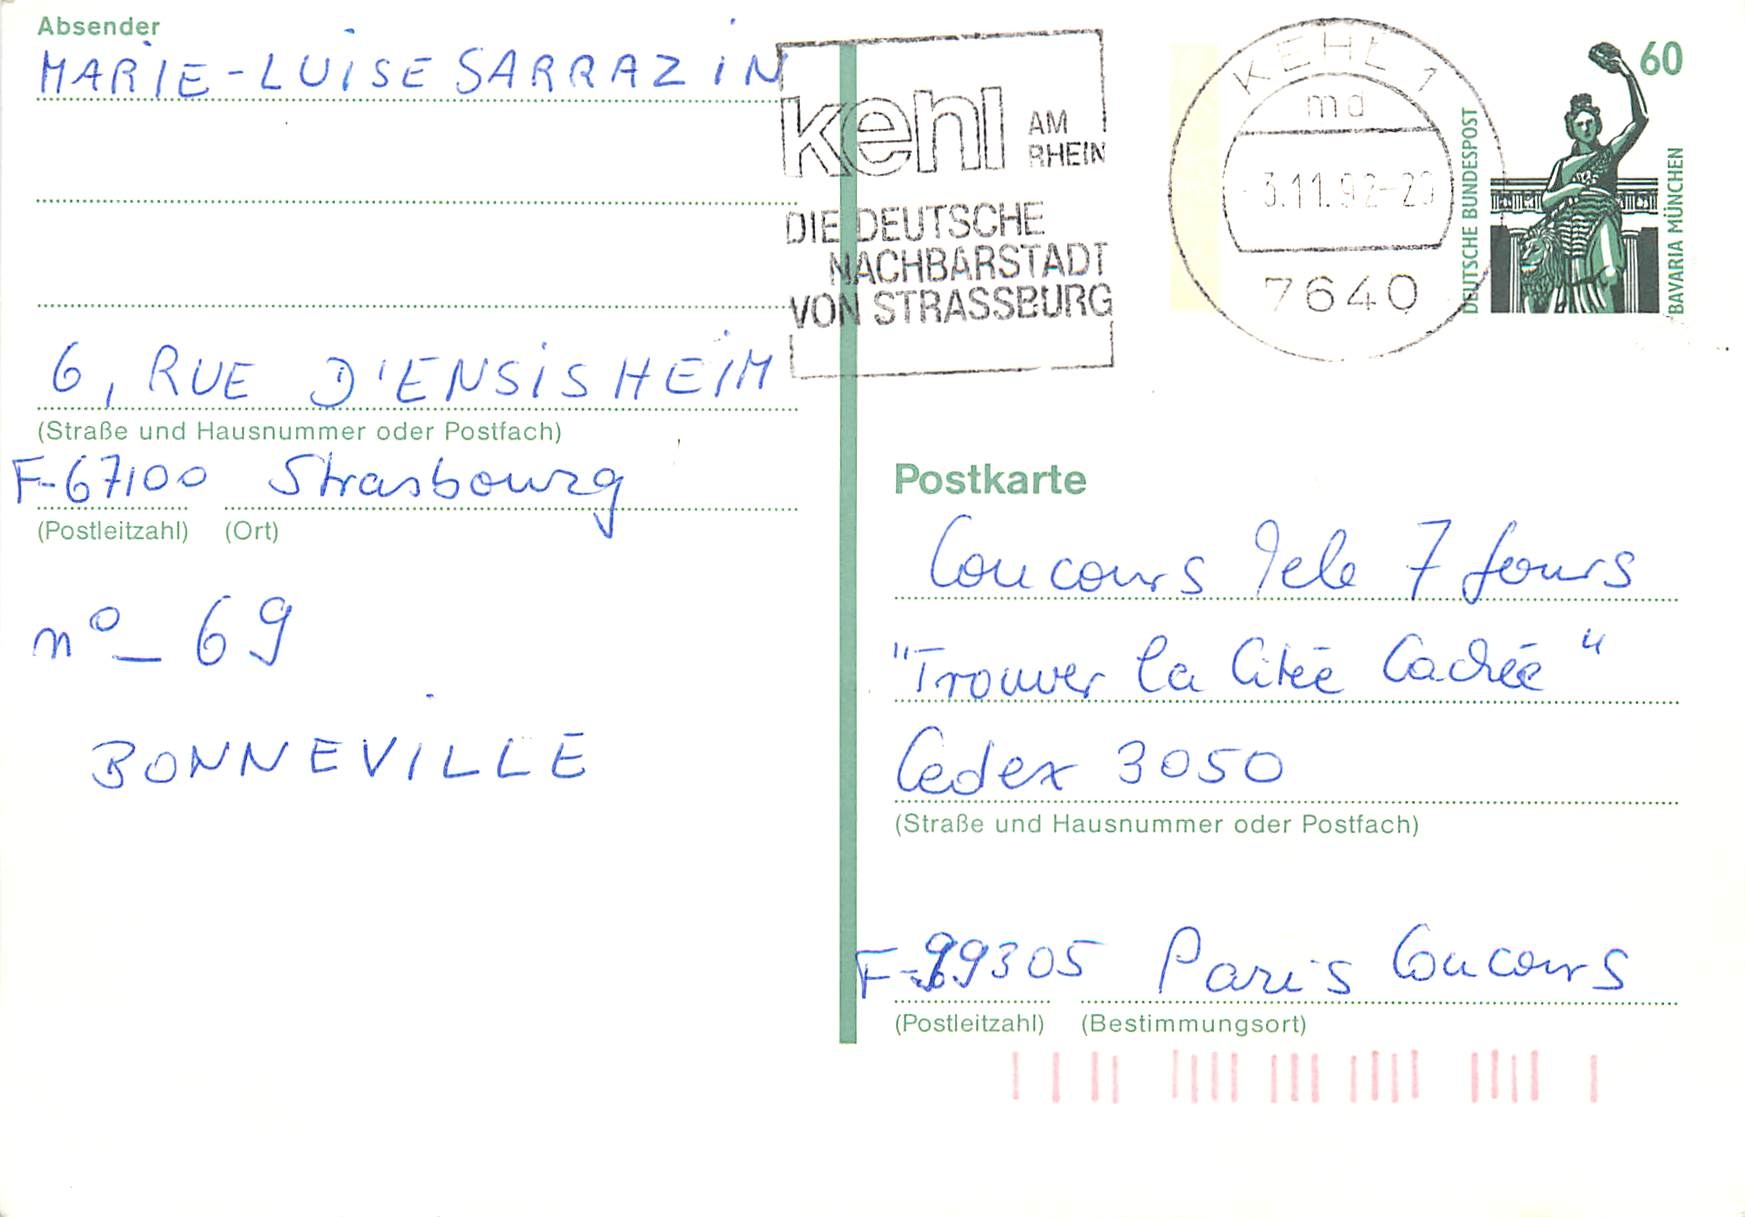 Absender
MARIE-LUISE SARRAZIN
6, RUE D'ENSISHEIM
(Straße und Hausnummer oder Postfach)
F-67100 Strasbourg
(Postleitzahl) (Ort)
n° 69
BONNEVILLE
kehl AM RHEIN
DIE DEUTSCHE
NACHBARSTADT
VON STRASSBURG
KEHL 1
md
-3.11.92-20
7640
60
DEUTSCHE BUNDESPOST
BAVARIA MÜNCHEN
Postkarte
Concours Tele 7 Jours
"Trouver la Citée Cachée"
Cedex 3050
(Straße und Hausnummer oder Postfach)
F-99305 Paris Concours
(Postleitzahl) (Bestimmungsort)